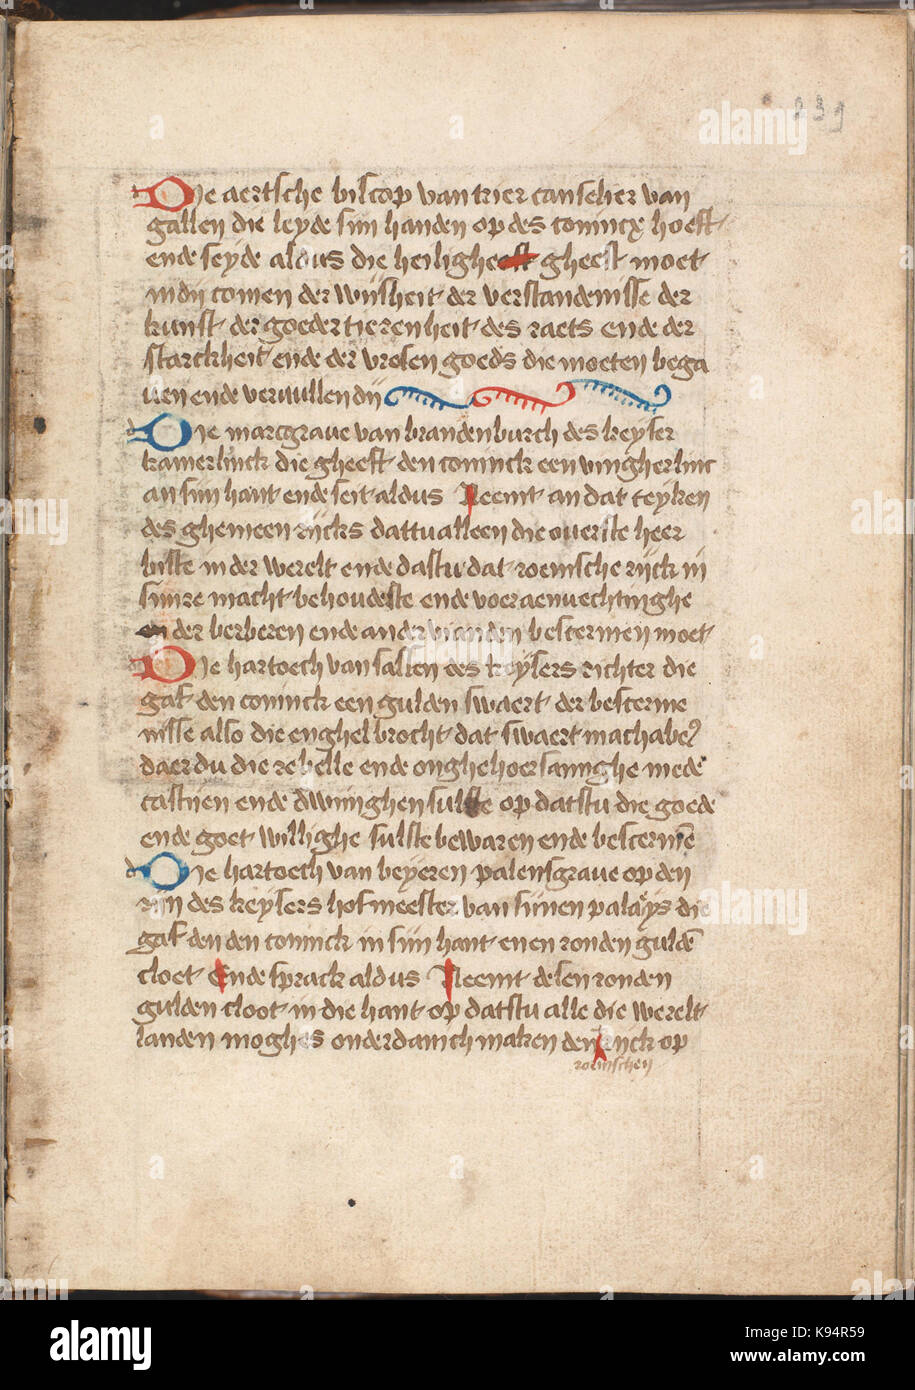 239
Die aertsche biscop van trier canselier van
gallen die leyde sijn handen op des conincx hoeft
ende seyde aldus die heilighe gheest moet
in dij comen der wijsheit der verstandenisse der
kunst der goedertierenheit des raets ende der
starckheit ende der vresen goeds die moeten bega
uen ende veruullen dij
Die marcgraue van brandenburch des keyser
kamerlinck die gheeft den coninck een vingherlinc
an sijn hant ende seit aldus Neemt an dat teyken
des ghemeen rijcks dattu alleen die ouerste heer
biste in der werelt ende dastu dat roemsche rijck in
sijnre macht behoudeste ende voer aenuechtinghe
der berberen ende ander vianden bescermen moet
Die hartoech van sassen des keysers richter die
gaf den coninck een gulden swaert der bescerme
nisse also die enghel brocht dat swaert machabeo
daer du die rebelle ende onghehoersamighe mede
castijen ende dwinghen sulste op datstu die goede
ende goet willighe sulste bewaren ende bescermē
Die hartoech van beyeren palensgraue op den
rijn des keysers hofmeester van sijnen palays die
gaf den den coninck in sijn hant enen ronden guldē
cloet Ende sprack aldus Neemt desen ronden
gulden cloot in die hant op datstu alle die werelt
landen moghes onderdanich maken den rijck op
roemschen
alamy
Image ID: K94R59
www.alamy.com